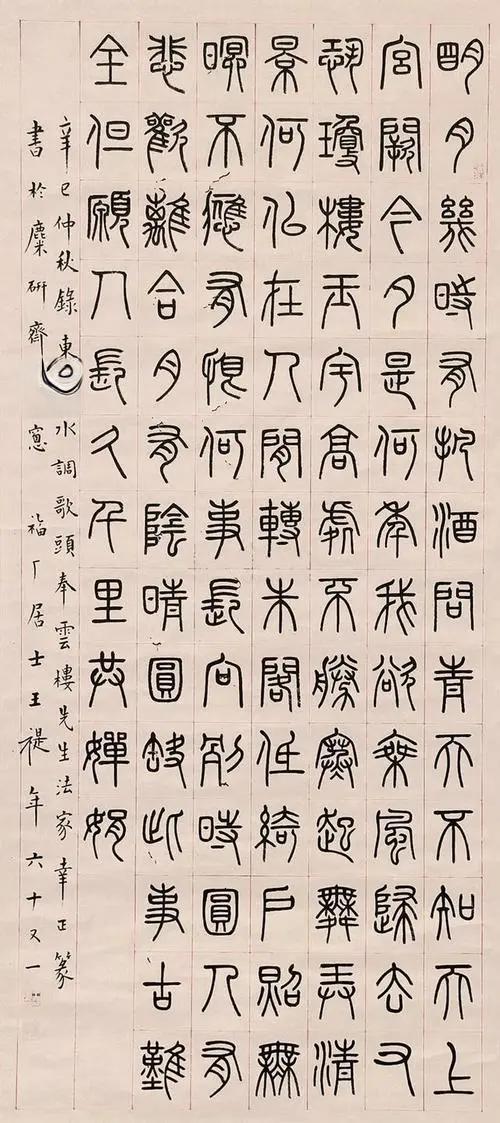 明月幾時有把酒問青天不知天上
宮闕今夕是何年我欲乘風歸去又
恐瓊樓玉宇高處不勝寒起舞弄清
景何似在人間轉朱閣低綺戶照無
眠不應有恨何事長向別時圓人有
悲歡離合月有陰晴圓缺此事古難
全但願人長久千里共嬋娟
辛巳仲秋錄東水調歌頭奉雲樓先生法家幸正篆
書於麋研齋窻福厂居士王禔年六十又一